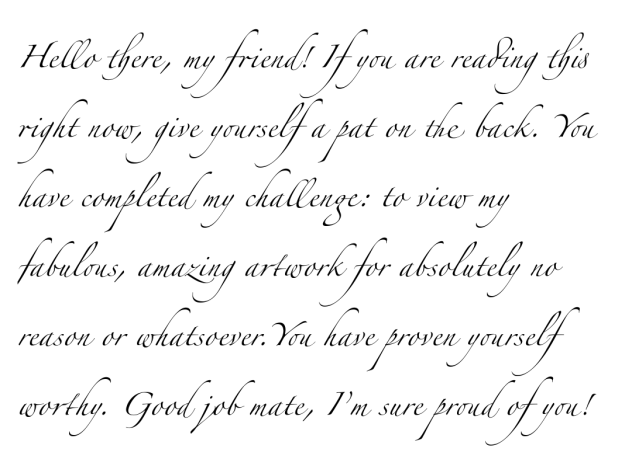 Hello there, my friend! If you are reading this
right now, give yourself a pat on the back. You
have completed my challenge: to view my
fabulous, amazing artwork for absolutely no
reason or whatsoever.You have proven yourself
worthy. Good job mate, I'm sure proud of you!